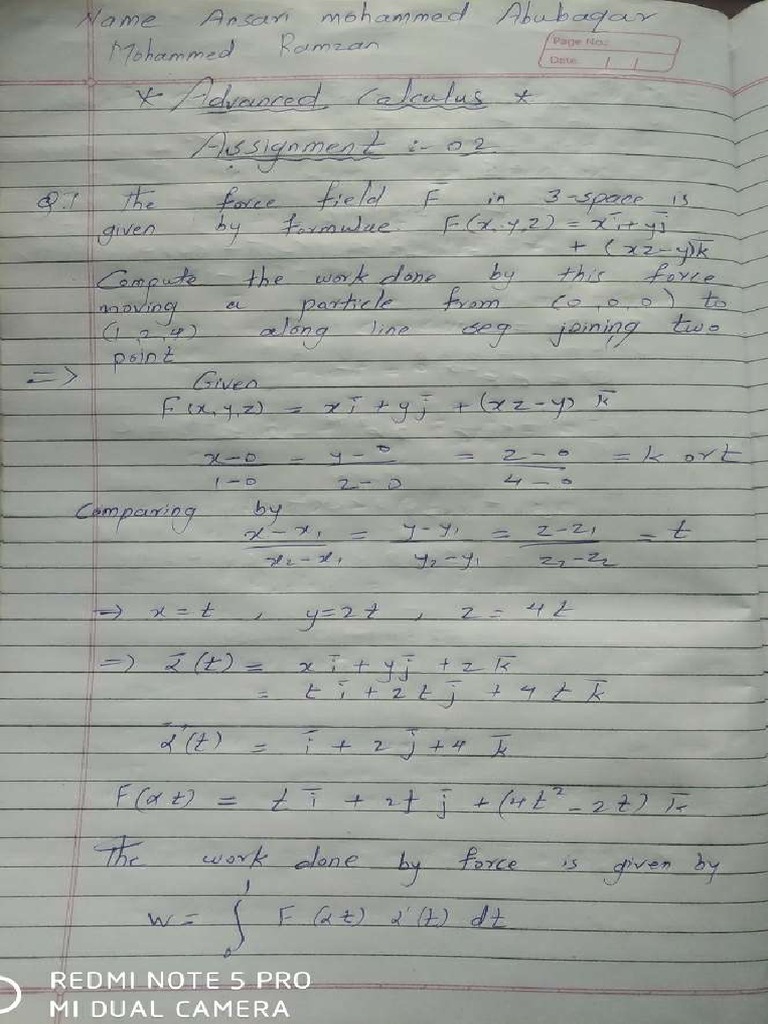 Name Ansari mohammed Abubaqar
Mohammed Ramzan
Page No.:
Date: / /
* Advanced Calculus *
Assignment :- 02
Q.1 The force field F̄ in 3-space is
given by formulae. F(x,y,z) = xī + yj̄
+ (xz-y)k̄
Compute the work done by this force
moving a particle from (0,0,0) to
(1,2,4) along line seg joining two
point
=> Given
F(x,y,z) = xī + yj̄ + (xz-y) k̄
x-0/1-0 = y-0/2-0 = z-0/4-0 = k or t
Comparing by
x-x₁/x₂-x₁ = y-y₁/y₂-y₁ = z-z₁/z₂-z₂ = t
=> x = t , y=2t , z = 4t
=> ᾱ(t) = x ī + yj̄ + z k̄
= t ī + 2t j̄ + 4t k̄
ᾱ'(t) = ī + 2j̄ + 4 k̄
F(αt) = t ī + 2t j̄ + (4t² - 2t) k̄
The work done by force is given by
W = ∫₀¹ F(αt) α'(t) dt
REDMI NOTE 5 PRO
MI DUAL CAMERA